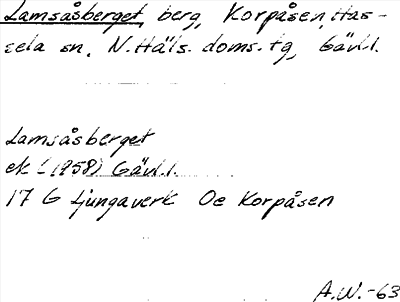 Lamsåsberget, berg, Korpåsen, Has-
sela sn, N. Häls. doms. tg, Gävl.l.
Lamsåsberget
ek (1958) Gävl.l.
17 G Ljungaverk Oe Korpåsen
A.W.-63